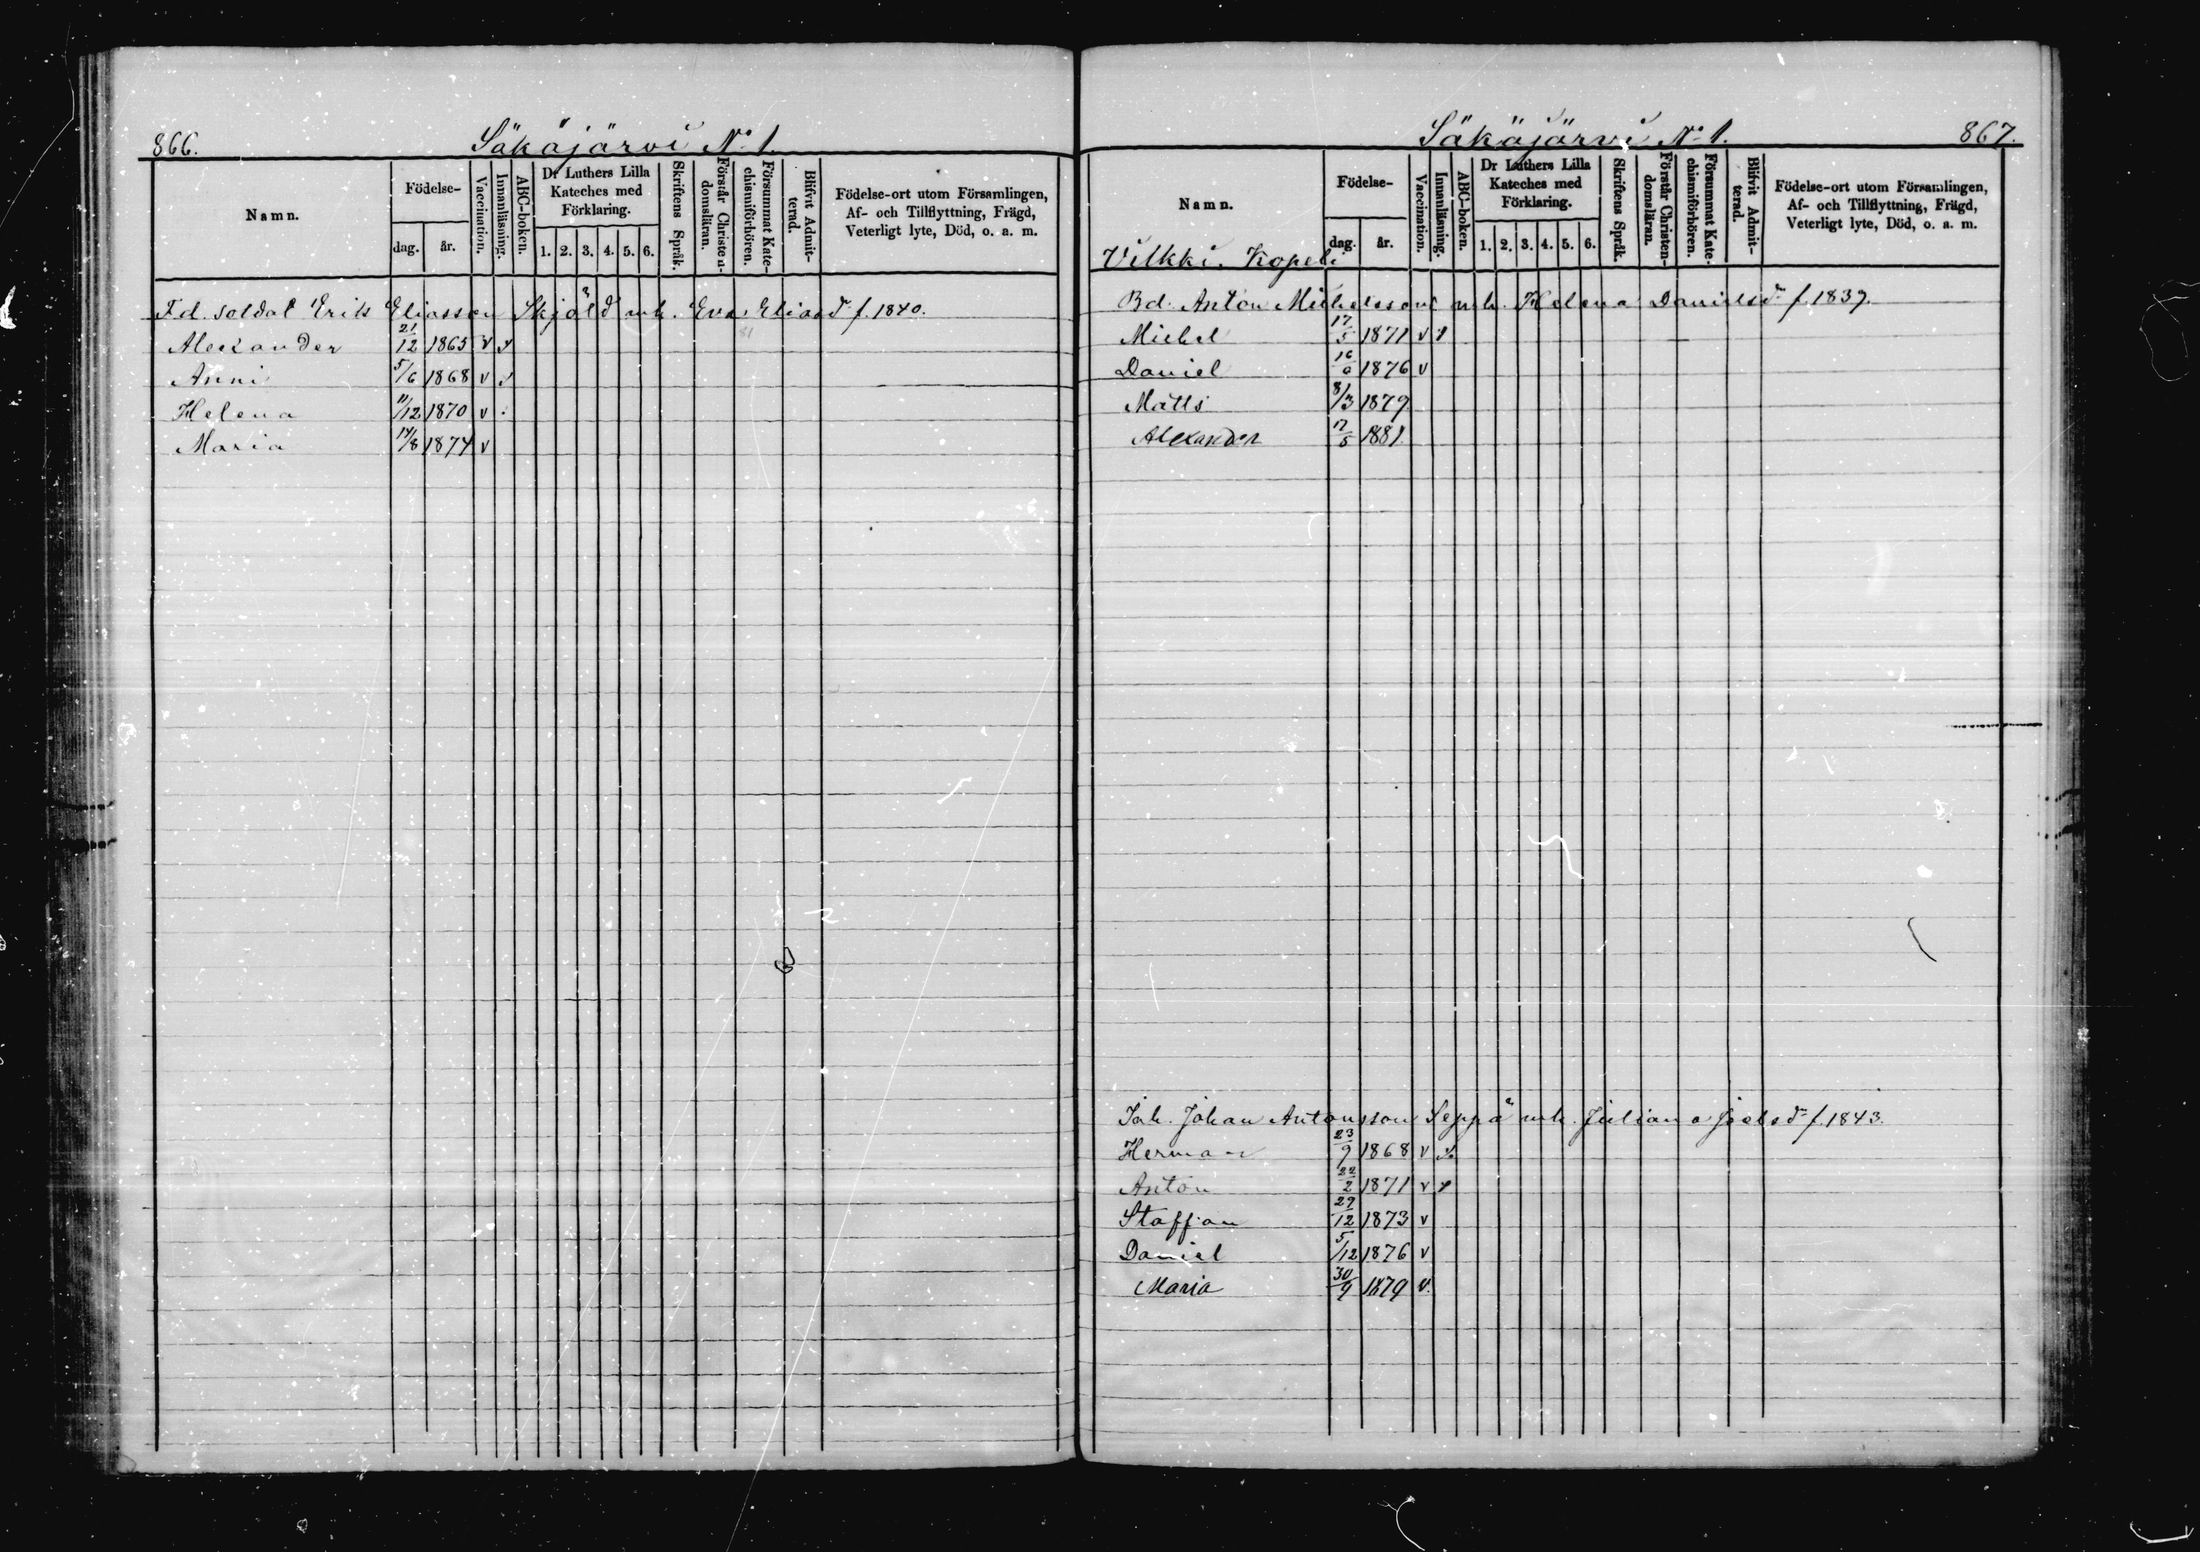 866.
Säkäjärvi No 1.
Namn.
Födelse-
dag. år.
Vaccination.
Innanläsning.
ABC-boken.
Dr Luthers Lilla
Kateches med
Förklaring.
1. 2. 3. 4. 5. 6.
Skriftens Språk.
Förstår Christen-
domsläran.
Försummat Kate-
chismiförhören.
Blifvit Admit-
terad.
Födelse-ort utom Församlingen,
Af- och Tillflyttning, Frägd,
Veterligt lyte, Död, o. a. m.
F.d. soldat Erik Eliasson Skjöld m.h. Eva Eliasdr f. 1840.
Alexander 21/12 1865 v
Anni 5/6 1868 v
Helena 11/12 1870 v
Maria 14/8 1874 v
Säkäjärvi No 1.
867.
Namn.
Födelse-
dag. år.
Vaccination.
Innanläsning.
ABC-boken.
Dr Luthers Lilla
Kateches med
Förklaring.
1. 2. 3. 4. 5. 6.
Skriftens Språk.
Förstår Christen-
domsläran.
Försummat Kate-
chismiförhören.
Blifvit Admit-
terad.
Födelse-ort utom Församlingen,
Af- och Tillflyttning, Frägd,
Veterligt lyte, Död, o. a. m.
Vilkki, Kopeli
Bd. Anton Michelsson m.h. Helena Danielsdr f. 1839.
Michel 17/5 1871 v
Daniel 1876 v
Matts 31/3 1879.
Alexander 17/5 1881.
Inh. Johan Antonsson Seppä m.h. Juliana Joelsdr f. 1843.
Herman 23/9 1868 v
Anton 22/2 1871 v
Staffan 29/12 1873 v
Daniel 5/12 1876 v
Maria 30/9 1879 v.